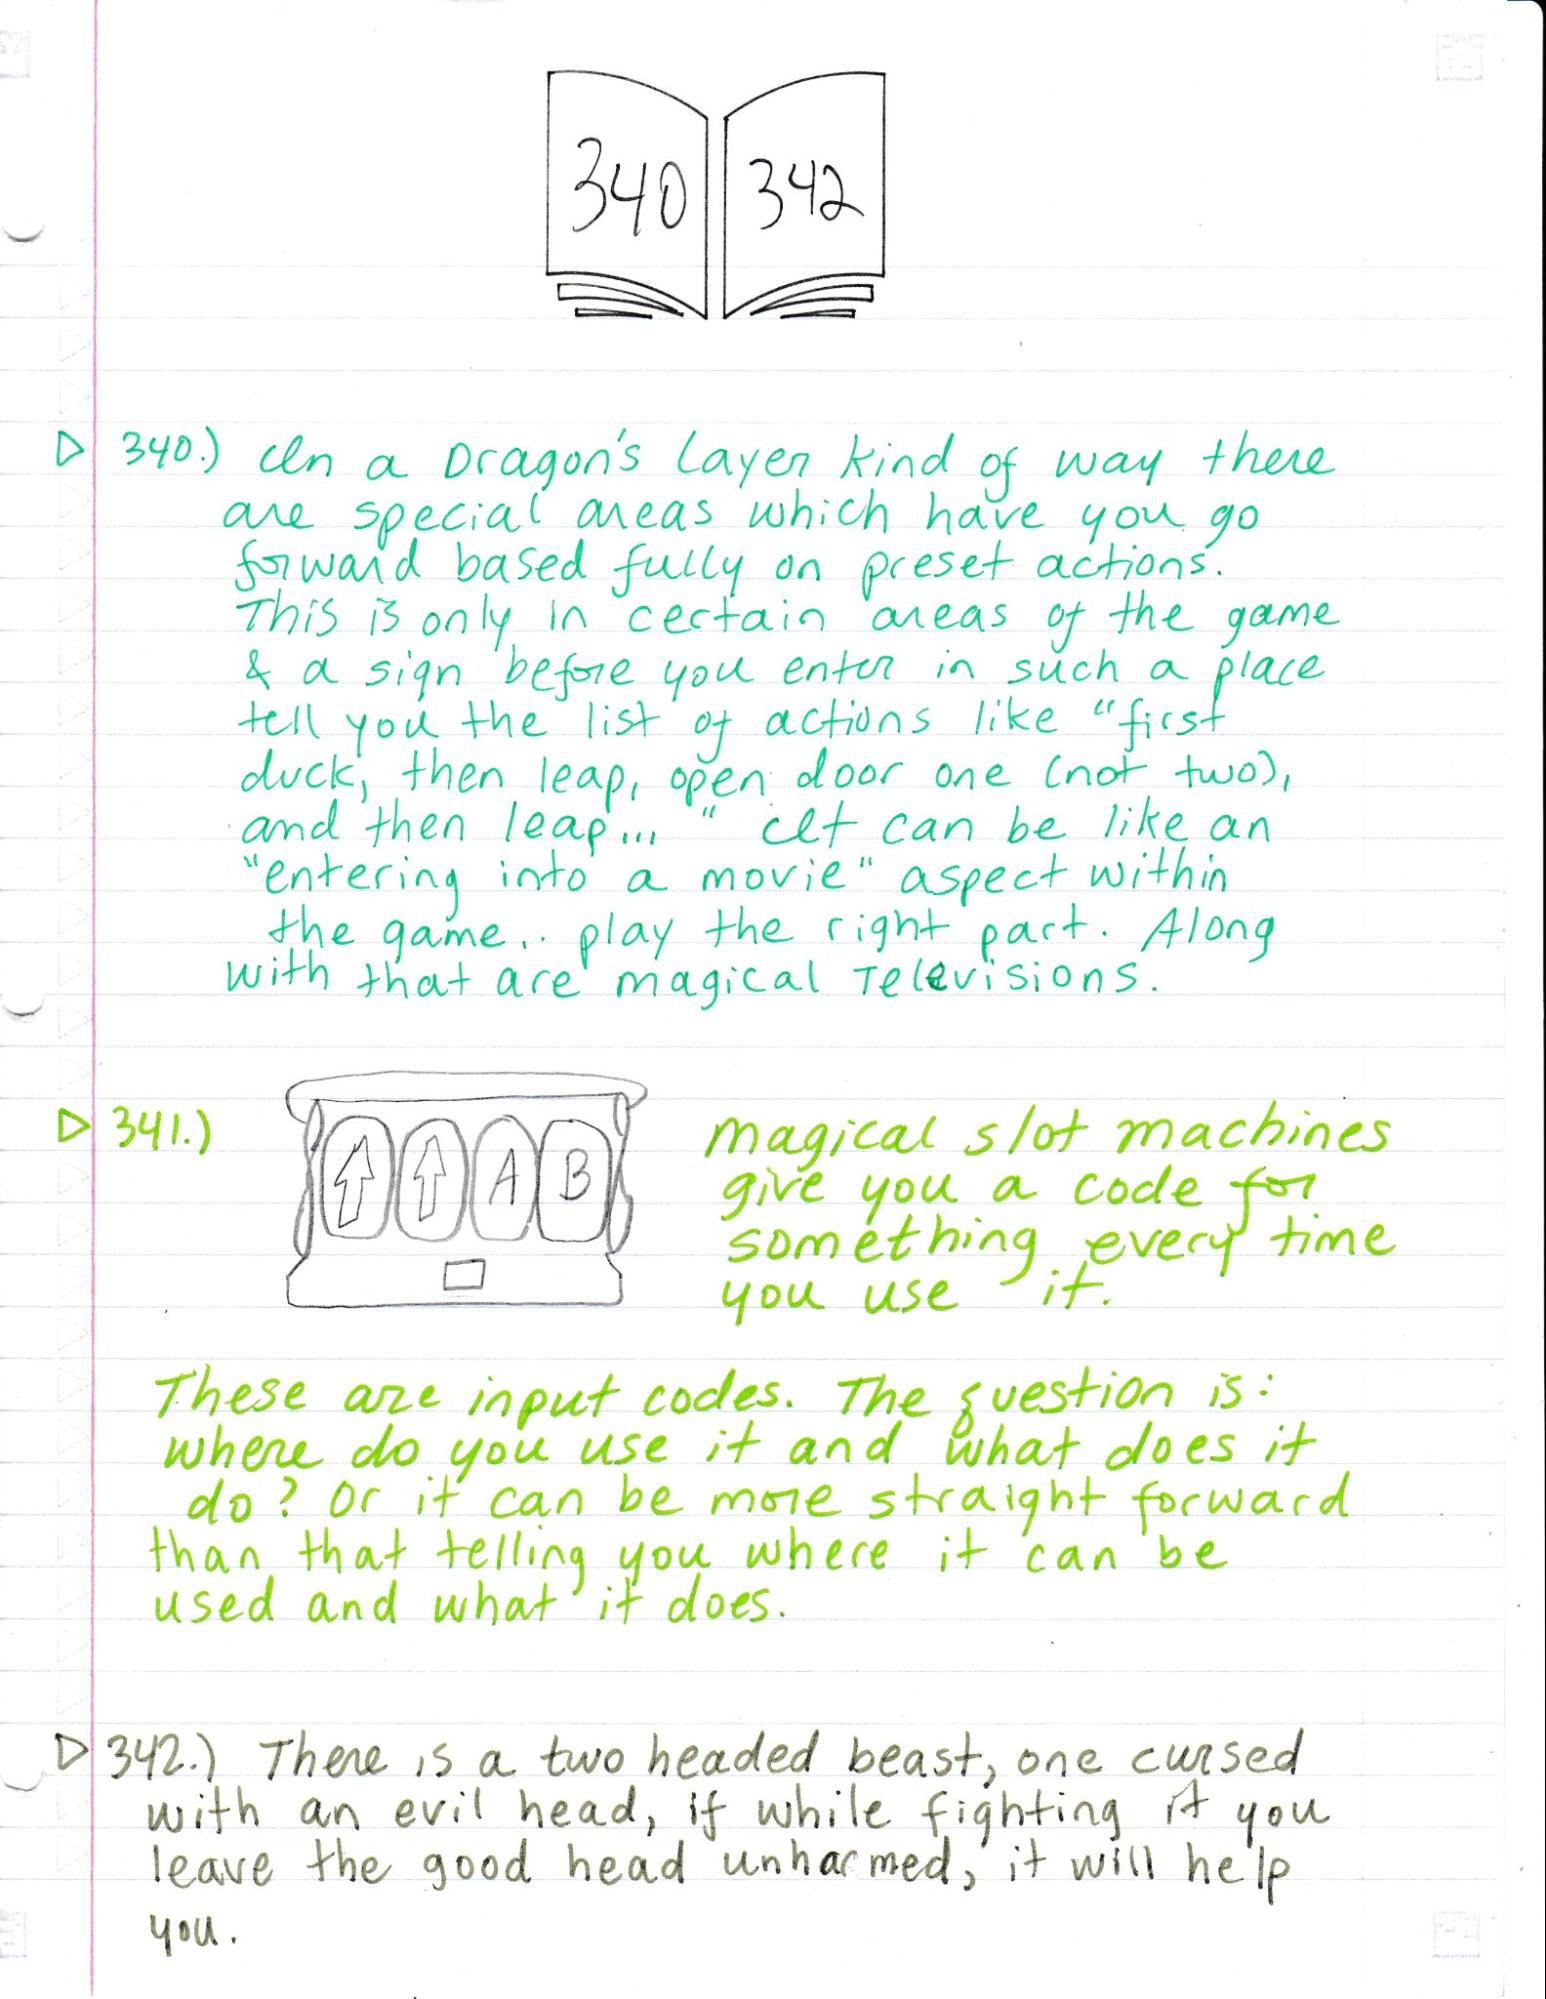 340 342
340.) In a Dragon's Layer kind of way there
are special areas which have you go
forward based fully on preset actions.
This is only in certain areas of the game
& a sign before you enter in such a place
tell you the list of actions like "first
duck, then leap, open door one (not two),
and then leap... " It can be like an
"entering into a movie" aspect within
the game.. play the right part. Along
with that are magical Televisions.
341.)
A B
magical slot machines
give you a code for
something every time
you use it.
These are input codes. The question is:
where do you use it and what does it
do? Or it can be more straight forward
than that telling you where it can be
used and what it does.
342.) There is a two headed beast, one cursed
with an evil head, if while fighting it you
leave the good head unharmed, it will help
you.